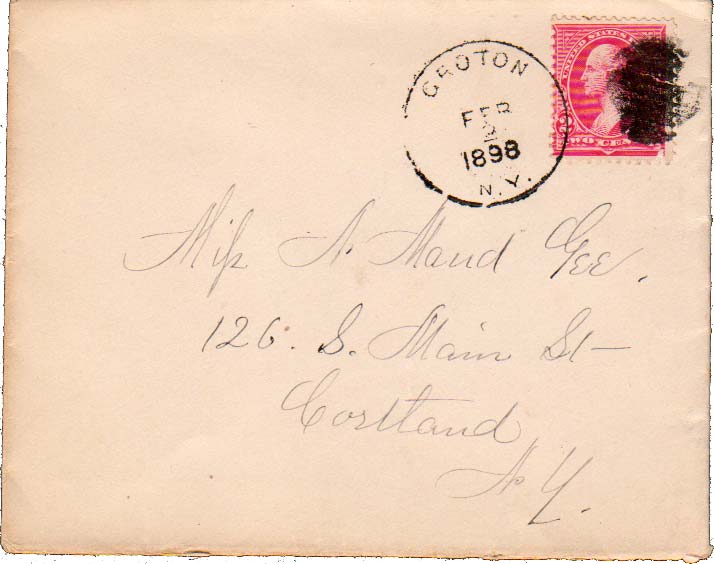 GROTON
FEB
2
1898
N.Y.
UNITED STATES
TWO CEN
Miss N. Maud Gee.
126. S. Main St—
Cortland
N.Y.